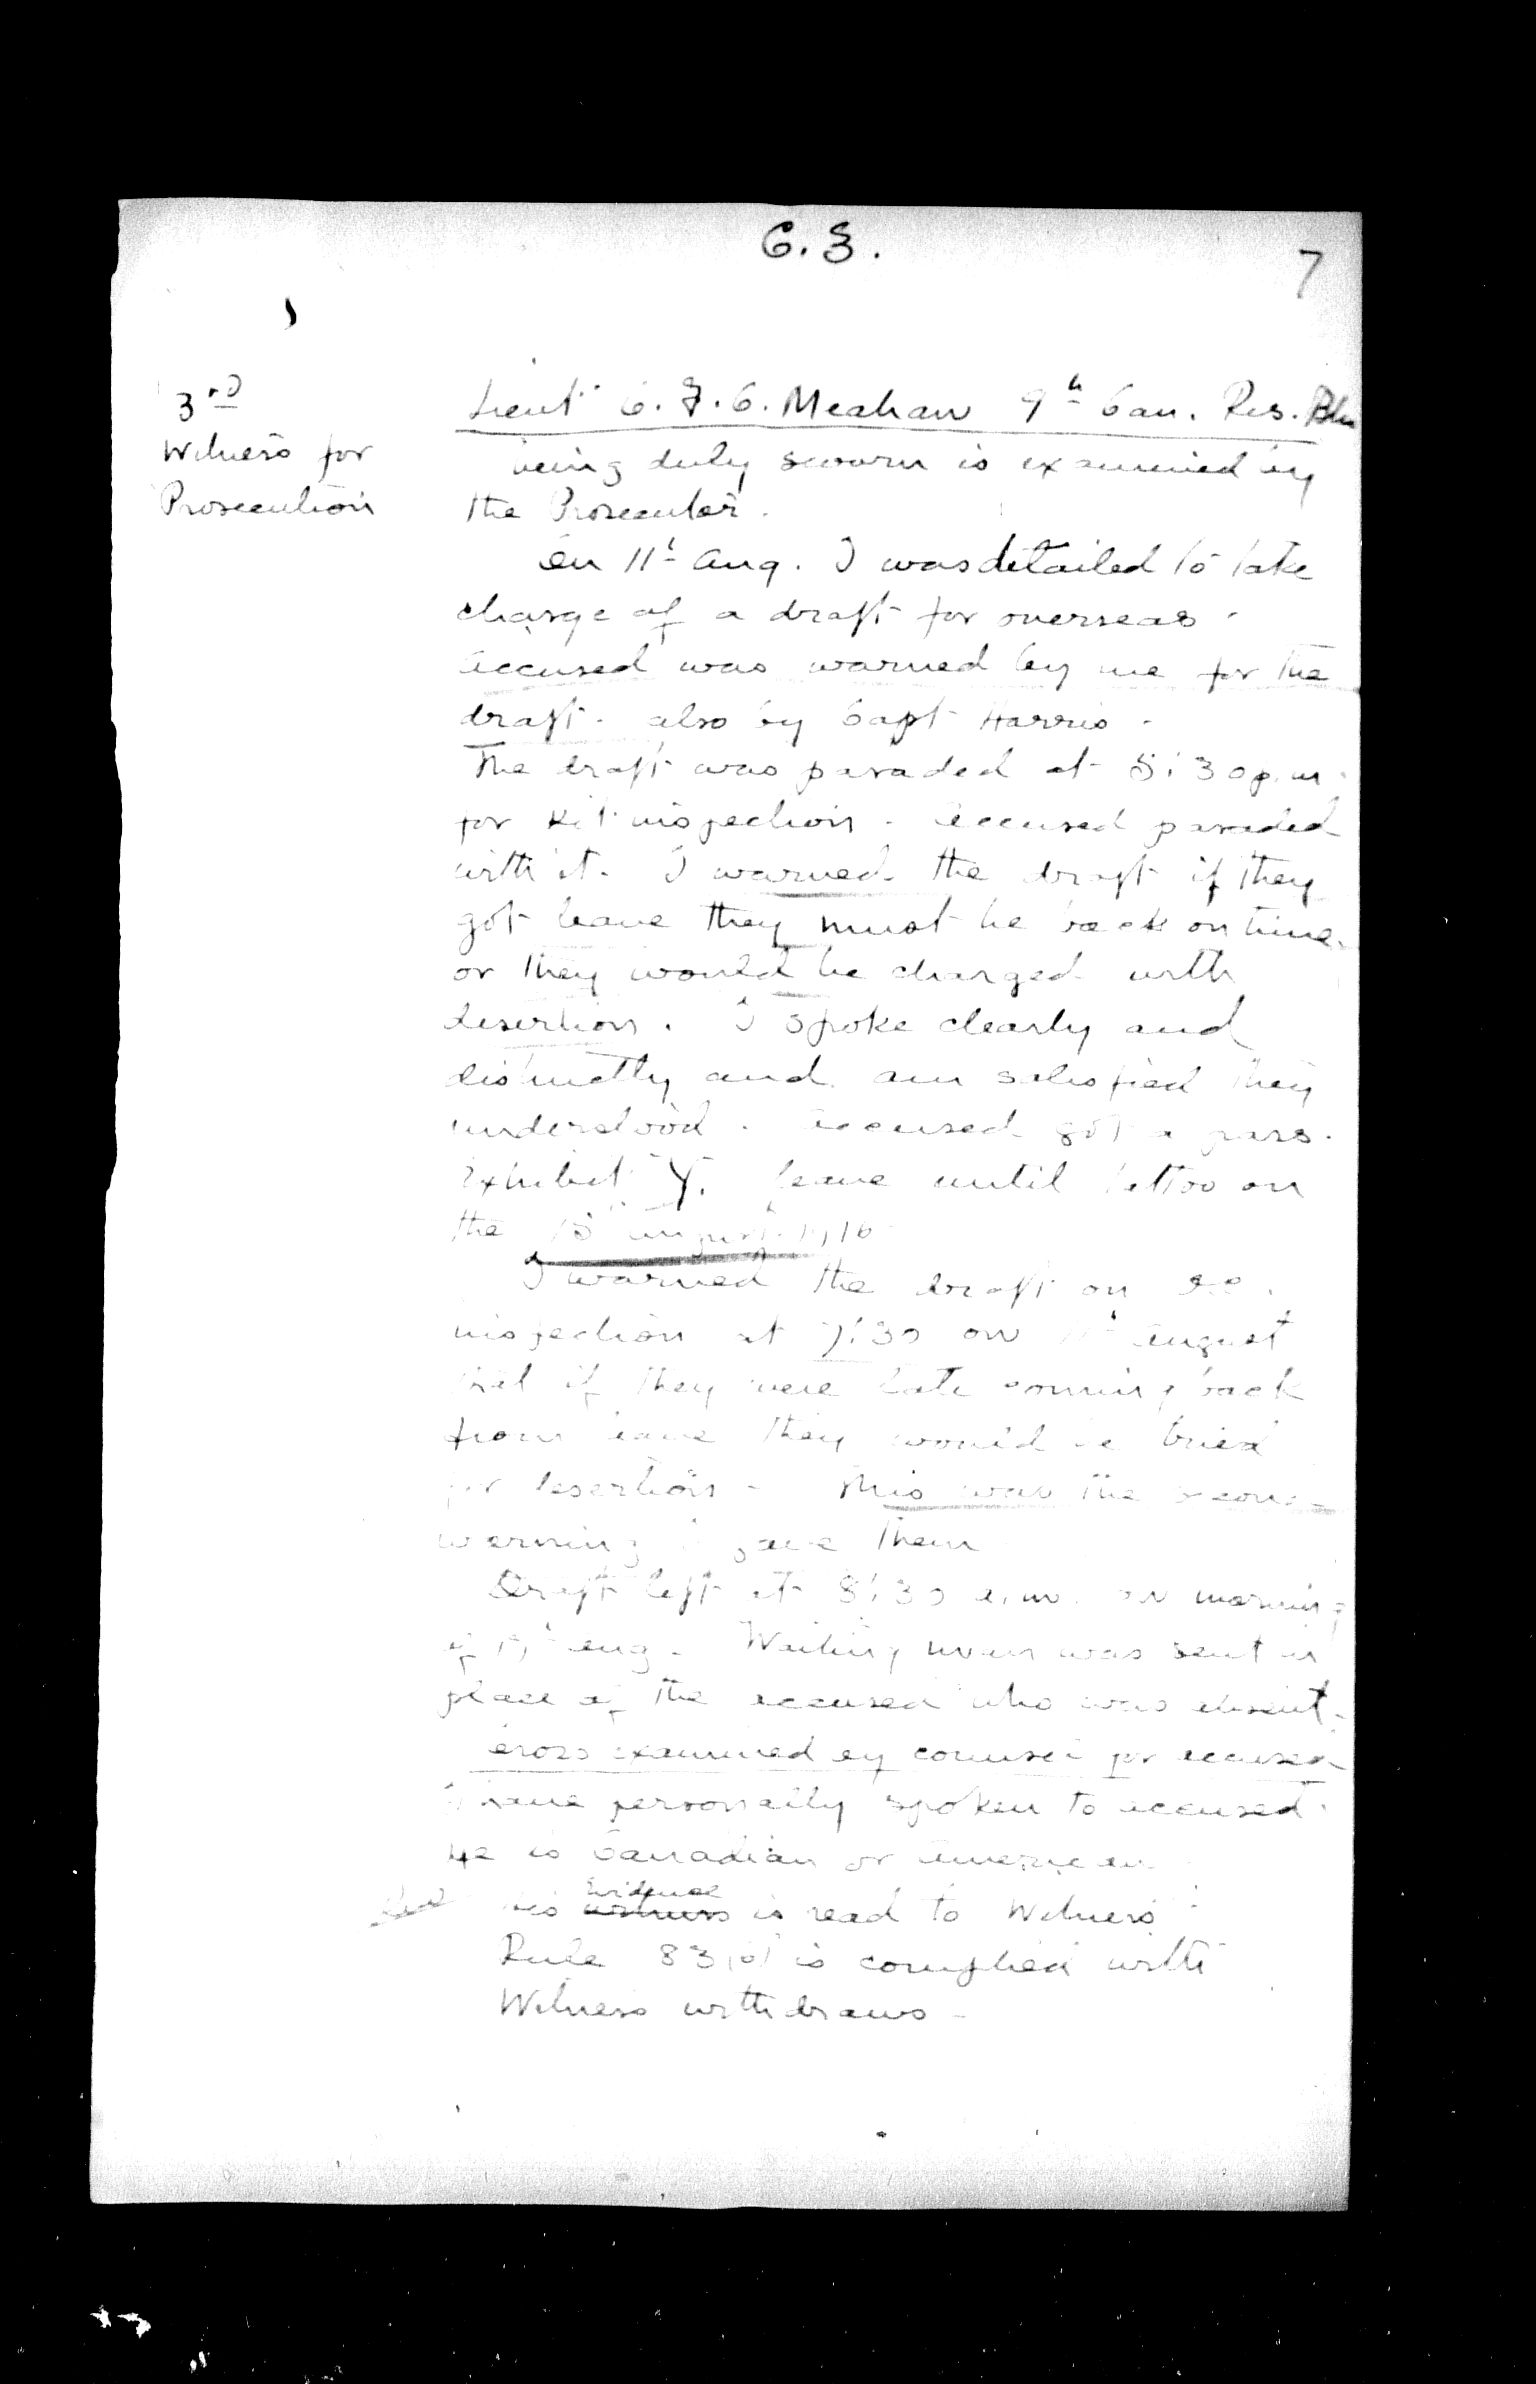 C.3.
7
3rd
Witness for
Prosecution
Lieut C. F. C. Meahan 9th Can. Res. Bn
being duly sworn is examined by
the Prosecutor.
On 11th Aug. I was detailed to take
charge of a draft for overseas.
Accused was warned by me for the
draft. also by Capt Harris.
The draft was paraded at 5:30 p.m.
for kit inspection. Accused paraded
with it. I warned the draft if they
got leave they must be back on time
or they would be charged with
desertion. I spoke clearly and
distinctly and am satisfied they
understood. Accused got a pass.
Exhibit Y. leave until tattoo on
the August 1916
I warned the draft on
inspection at 7:30 on 11th August
that if they were late coming back
from leave they would be tried
for desertion. This was the second
warning I gave them
Draft left at 8:30 a.m. on morning
of Aug. Waiting man was sent in
place of the accused who was absent.
Cross examined by counsel for accused
I have personally spoken to accused.
He is Canadian or American
His witness evidence is read to Witness
Rule 83(B) is complied with
Witness withdraws.